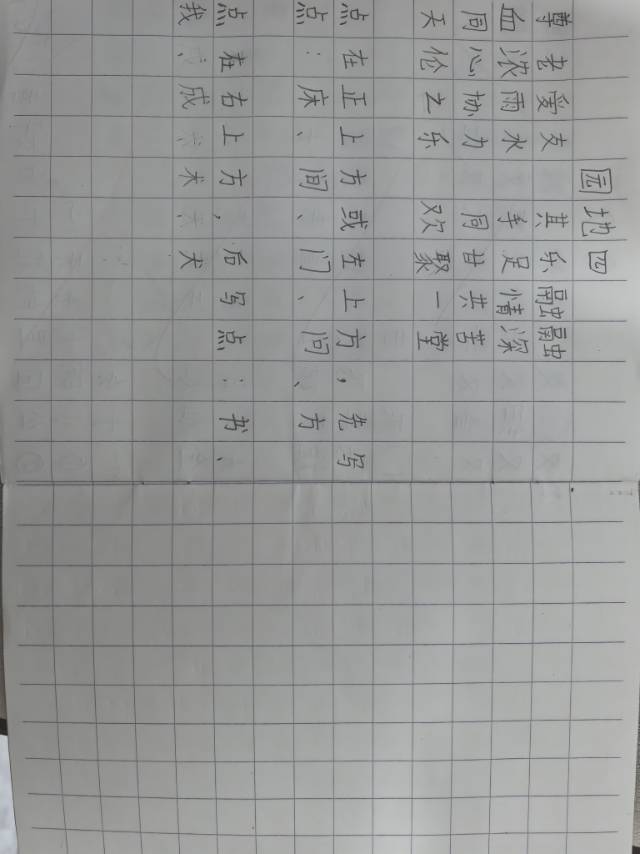 园地四
尊老爱支 其乐融融
血浓雨水 手足情深
同心协力 同甘共苦
天伦之乐 欢聚一堂
点在正上方或左上方，先写
点：床、间、门、问、方
点在右上方，后写点：书、
我、成、术、犬